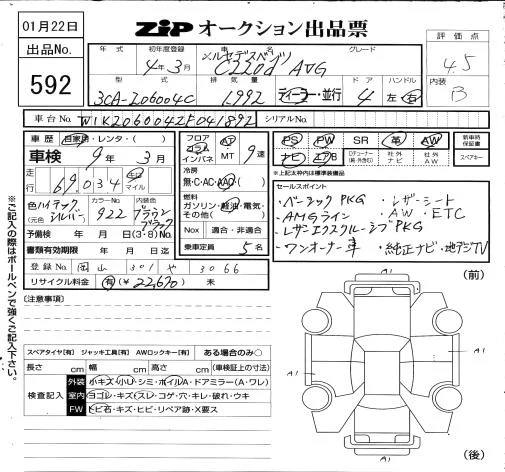 01月22日
ZIP オークション出品票
出品No.
592
年式
初年度登録
4年3月
車名
メルセデスベンツ
C220d AVG
グレード
評価点
4.5
型式
3CA-206004C
排気量
1,992
ディーラー・並行
ドア
4
ハンドル
左・右
内装
B
車台No. W1K2060042F041892
シリアルNo.
車歴 自家用・レンタ・( )
車検 9年3月
走行 69,034 キロ マイル
色 ハイテックシルバー
(元色 )
カラーNo.
922
内装色
ブラウン
ブラック
予備検 年 月 日(3・6)No.
書類有効期限 年 月 日迄
登録No. 岡山 301 や 3066
リサイクル料金 有(¥22,670) 未
フロア コラム インパネ
AT MT 9速
冷房
無・C・AC・AAC( )
燃料
ガソリン・軽油・電気・
その他( )
Nox 適合・非適合
乗車定員 5名
PS PW SR 革 AW
新車時保証書
ナビ エアB Dチューナー(純・外含む) 社外ナビ 社外AW スペアキー
※上記太枠内は標準装備品
セールスポイント
・ベーシックPKG ・レザーシート
・AMGライン ・AW・ETC
・レザーエクスクルーシブPKG
・ワンオーナー車 ・純正ナビ・地デジTV
(注意事項)
スペアタイヤ【有】 ジャッキ工具【有】 AWロックキー【有】 ある場合のみ○
長さ cm 幅 cm 高さ cm (車検証上の寸法)
検査記入
外装 小キズ・小U・シミ・ホイルA・ドアミラー(A・ワレ)
室内 ヨゴレ・キズ・スレ・コゲ・穴・キレ・破れ・ウキ
FW トビ石・キズ・ヒビ・リペア跡・X要ス
(前)
A1
A1
A1
(後)
※ご記入の際はボールペンで強くご記入下さい。